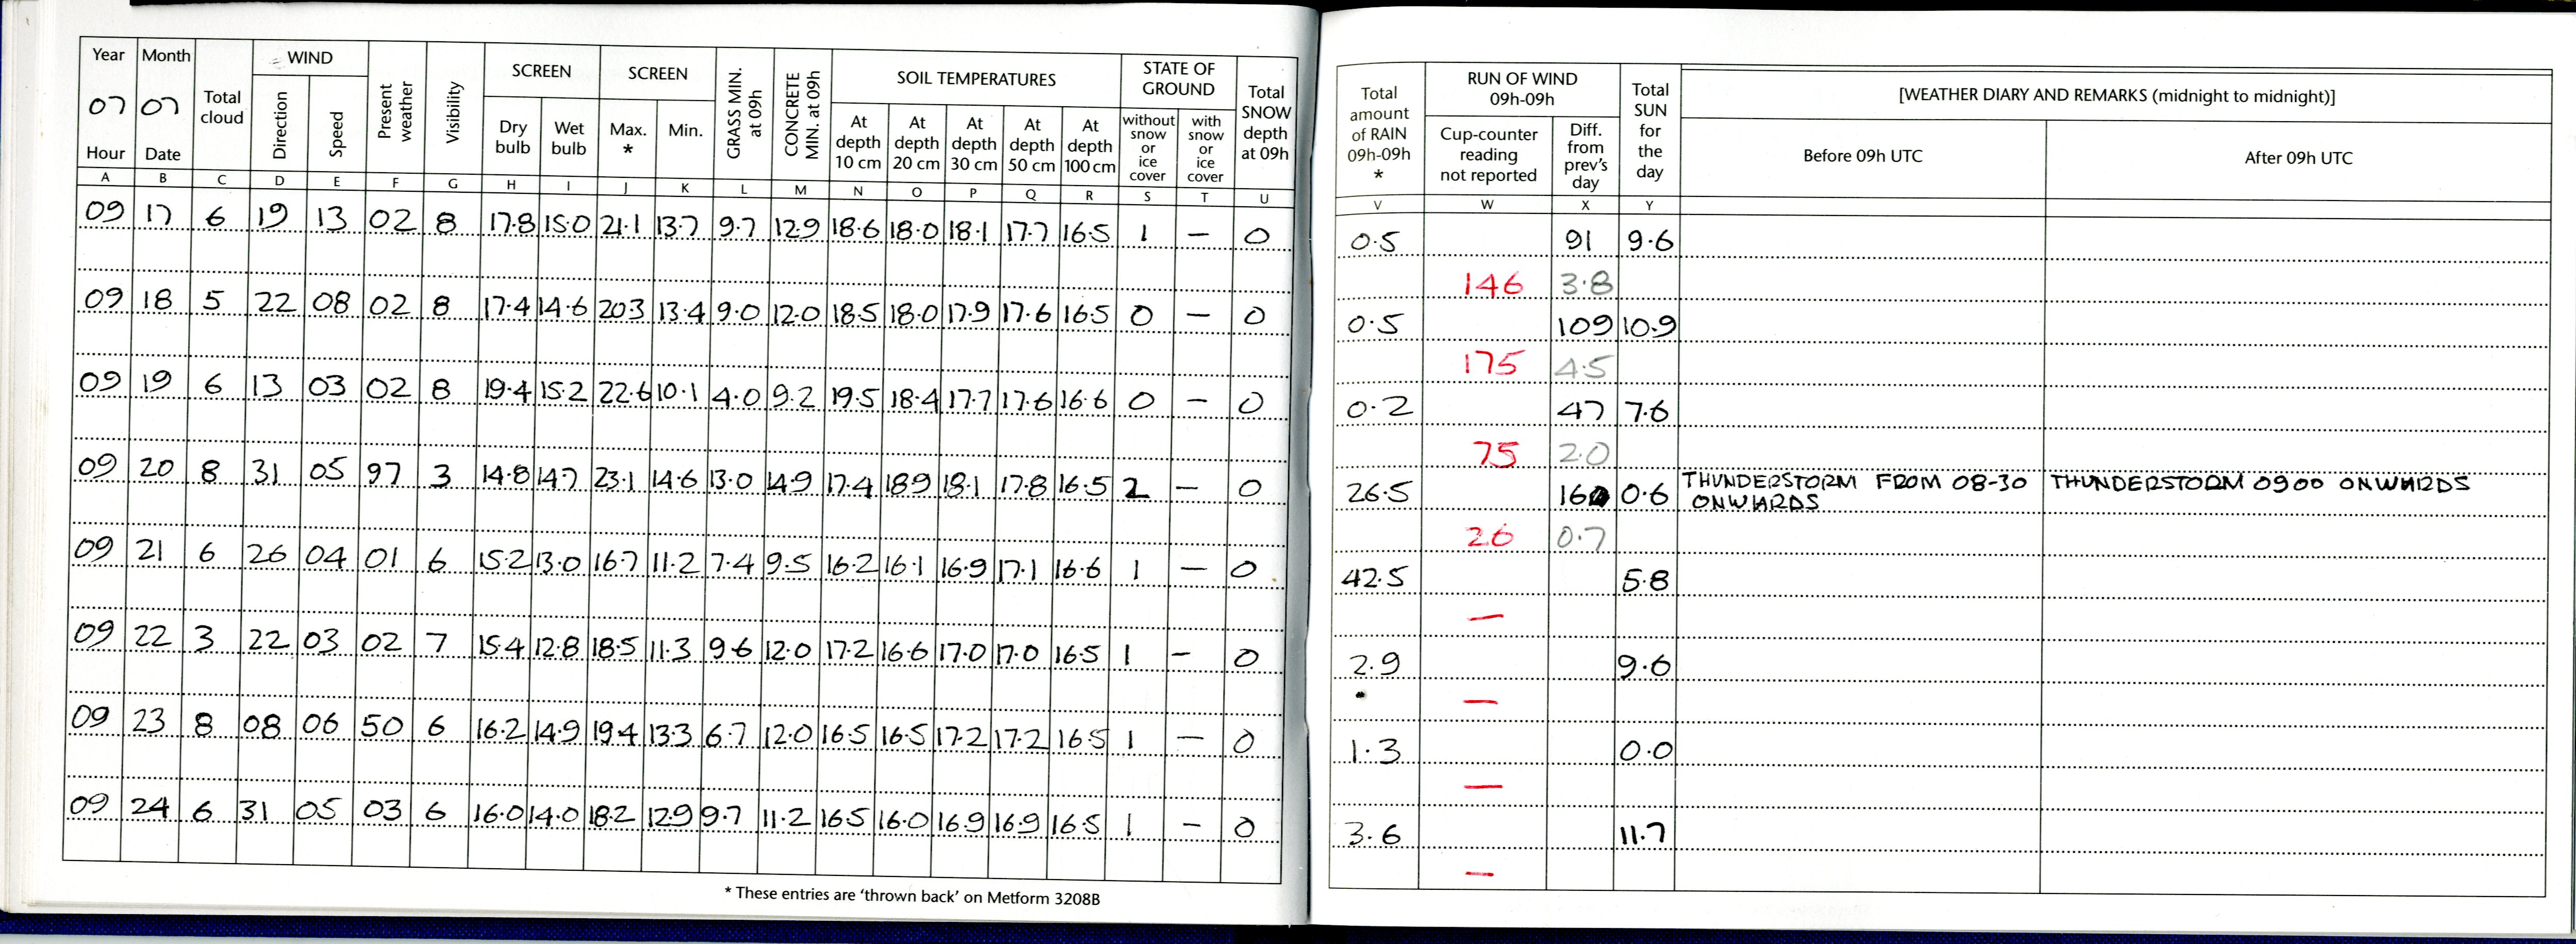 Year Month Total cloud WIND Present weather Visibility SCREEN SCREEN GRASS MIN. at 09h CONCRETE MIN. at 09h SOIL TEMPERATURES STATE OF GROUND Total SNOW depth at 09h
07 07 Direction Speed Dry bulb Wet bulb Max. * Min. At depth 10 cm At depth 20 cm At depth 30 cm At depth 50 cm At depth 100 cm without snow or ice cover with snow or ice cover
Hour Date
A B C D E F G H I J K L M N O P Q R S T U
09 17 6 19 13 02 8 17.8 15.0 21.1 13.7 9.7 12.9 18.6 18.0 18.1 17.7 16.5 1 — 0
09 18 5 22 08 02 8 17.4 14.6 20.3 13.4 9.0 12.0 18.5 18.0 17.9 17.6 16.5 0 — 0
09 19 6 13 03 02 8 19.4 15.2 22.6 10.1 4.0 9.2 19.5 18.4 17.7 17.6 16.6 0 — 0
09 20 8 31 05 97 3 14.8 14.7 23.1 14.6 13.0 14.9 17.4 18.9 18.1 17.8 16.5 2 — 0
09 21 6 26 04 01 6 15.2 13.0 16.7 11.2 7.4 9.5 16.2 16.1 16.9 17.1 16.6 1 — 0
09 22 3 22 03 02 7 15.4 12.8 18.5 11.3 9.6 12.0 17.2 16.6 17.0 17.0 16.5 1 — 0
09 23 8 08 06 50 6 16.2 14.9 19.4 13.3 6.7 12.0 16.5 16.5 17.2 17.2 16.5 1 — 0
09 24 6 31 05 03 6 16.0 14.0 18.2 12.9 9.7 11.2 16.5 16.0 16.9 16.9 16.5 1 — 0
* These entries are 'thrown back' on Metform 3208B
Total amount of RAIN 09h-09h * RUN OF WIND 09h-09h Total SUN for the day [WEATHER DIARY AND REMARKS (midnight to midnight)]
Cup-counter reading not reported Diff. from prev's day Before 09h UTC After 09h UTC
V W X Y
0.5 91 9.6
146 3.8
0.5 109 10.9
175 4.5
0.2 47 7.6
75 2.0
26.5 16 0.6 THUNDERSTORM FROM 08-30 THUNDERSTORM 0900 ONWARDS
ONWARDS
26 0.7
42.5 5.8
—
2.9 9.6
—
1.3 0.0
—
3.6 11.7
—